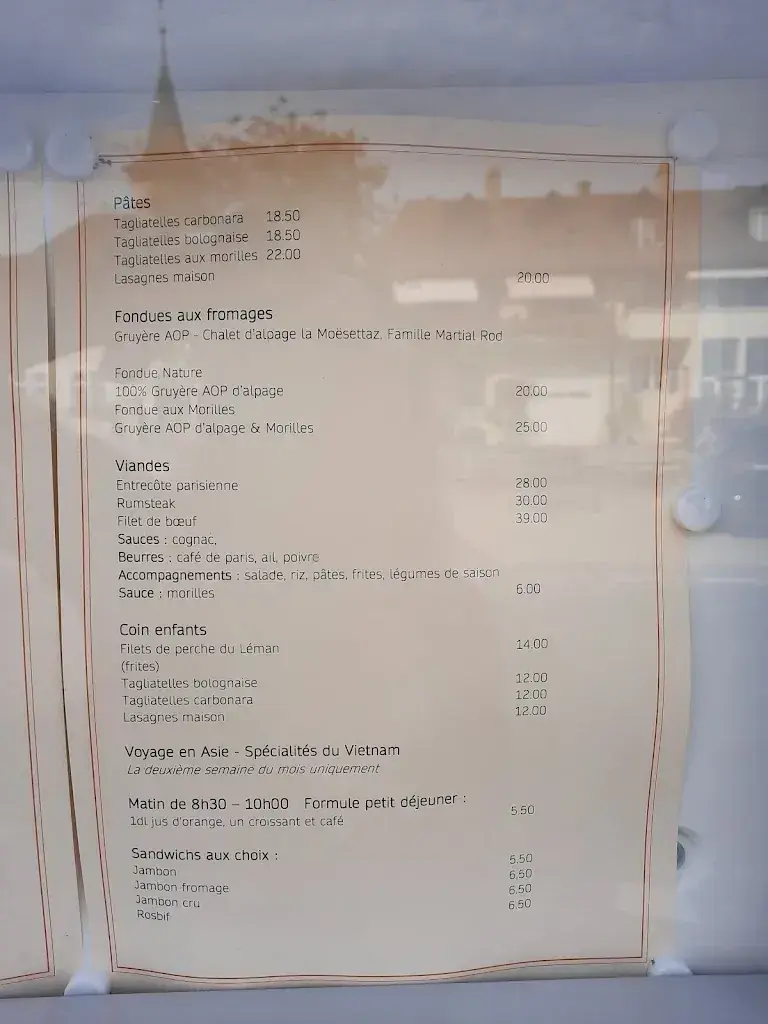 Pâtes
Tagliatelles carbonara 18.50
Tagliatelles bolognaise 18.50
Tagliatelles aux morilles 22.00
Lasagnes maison 20.00
Fondues aux fromages
Gruyère AOP - Chalet d'alpage la Moësettaz, Famille Martial Rod
Fondue Nature
100% Gruyère AOP d'alpage 20.00
Fondue aux Morilles
Gruyère AOP d'alpage & Morilles 25.00
Viandes
Entrecôte parisienne 28.00
Rumsteak 30.00
Filet de bœuf 39.00
Sauces : cognac,
Beurres : café de paris, ail, poivre
Accompagnements : salade, riz, pâtes, frites, légumes de saison
Sauce : morilles 6.00
Coin enfants
Filets de perche du Léman 14.00
(frites)
Tagliatelles bolognaise 12.00
Tagliatelles carbonara 12.00
Lasagnes maison 12.00
Voyage en Asie - Spécialités du Vietnam
La deuxième semaine du mois uniquement
Matin de 8h30 – 10h00 Formule petit déjeuner :
1dl jus d'orange, un croissant et café 5.50
Sandwichs aux choix :
Jambon 5.50
Jambon fromage 6.50
Jambon cru 6.50
Rosbif 6.50